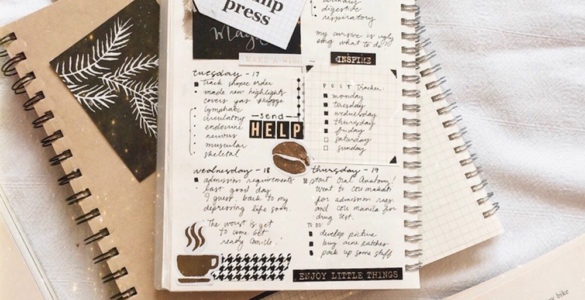 press
urinary
digestive
respiratory
my cursive is ugly
skng what to do
INSPIRE
tuesday - 17
track shopee order
made new highlights
covers
lymphatic
circulatory
endocrine
nervous
muscular
skeletal
send
HELP
Tracker
monday
tuesday
wednesday
thursday
friday
saturday
sunday
wednesday - 18
admission requirements
last good day
I guess. back to my
depressing life soon.
The worst is yet
to come. Get
ready
thursday - 19
start Oral Anatomy!
went to ceu makati
for admission reqs
and ceu manila for
drug test.
TO DO:
develop picture
buy acne patches
pack up some stuff
ENJOY LITTLE THINGS
bike